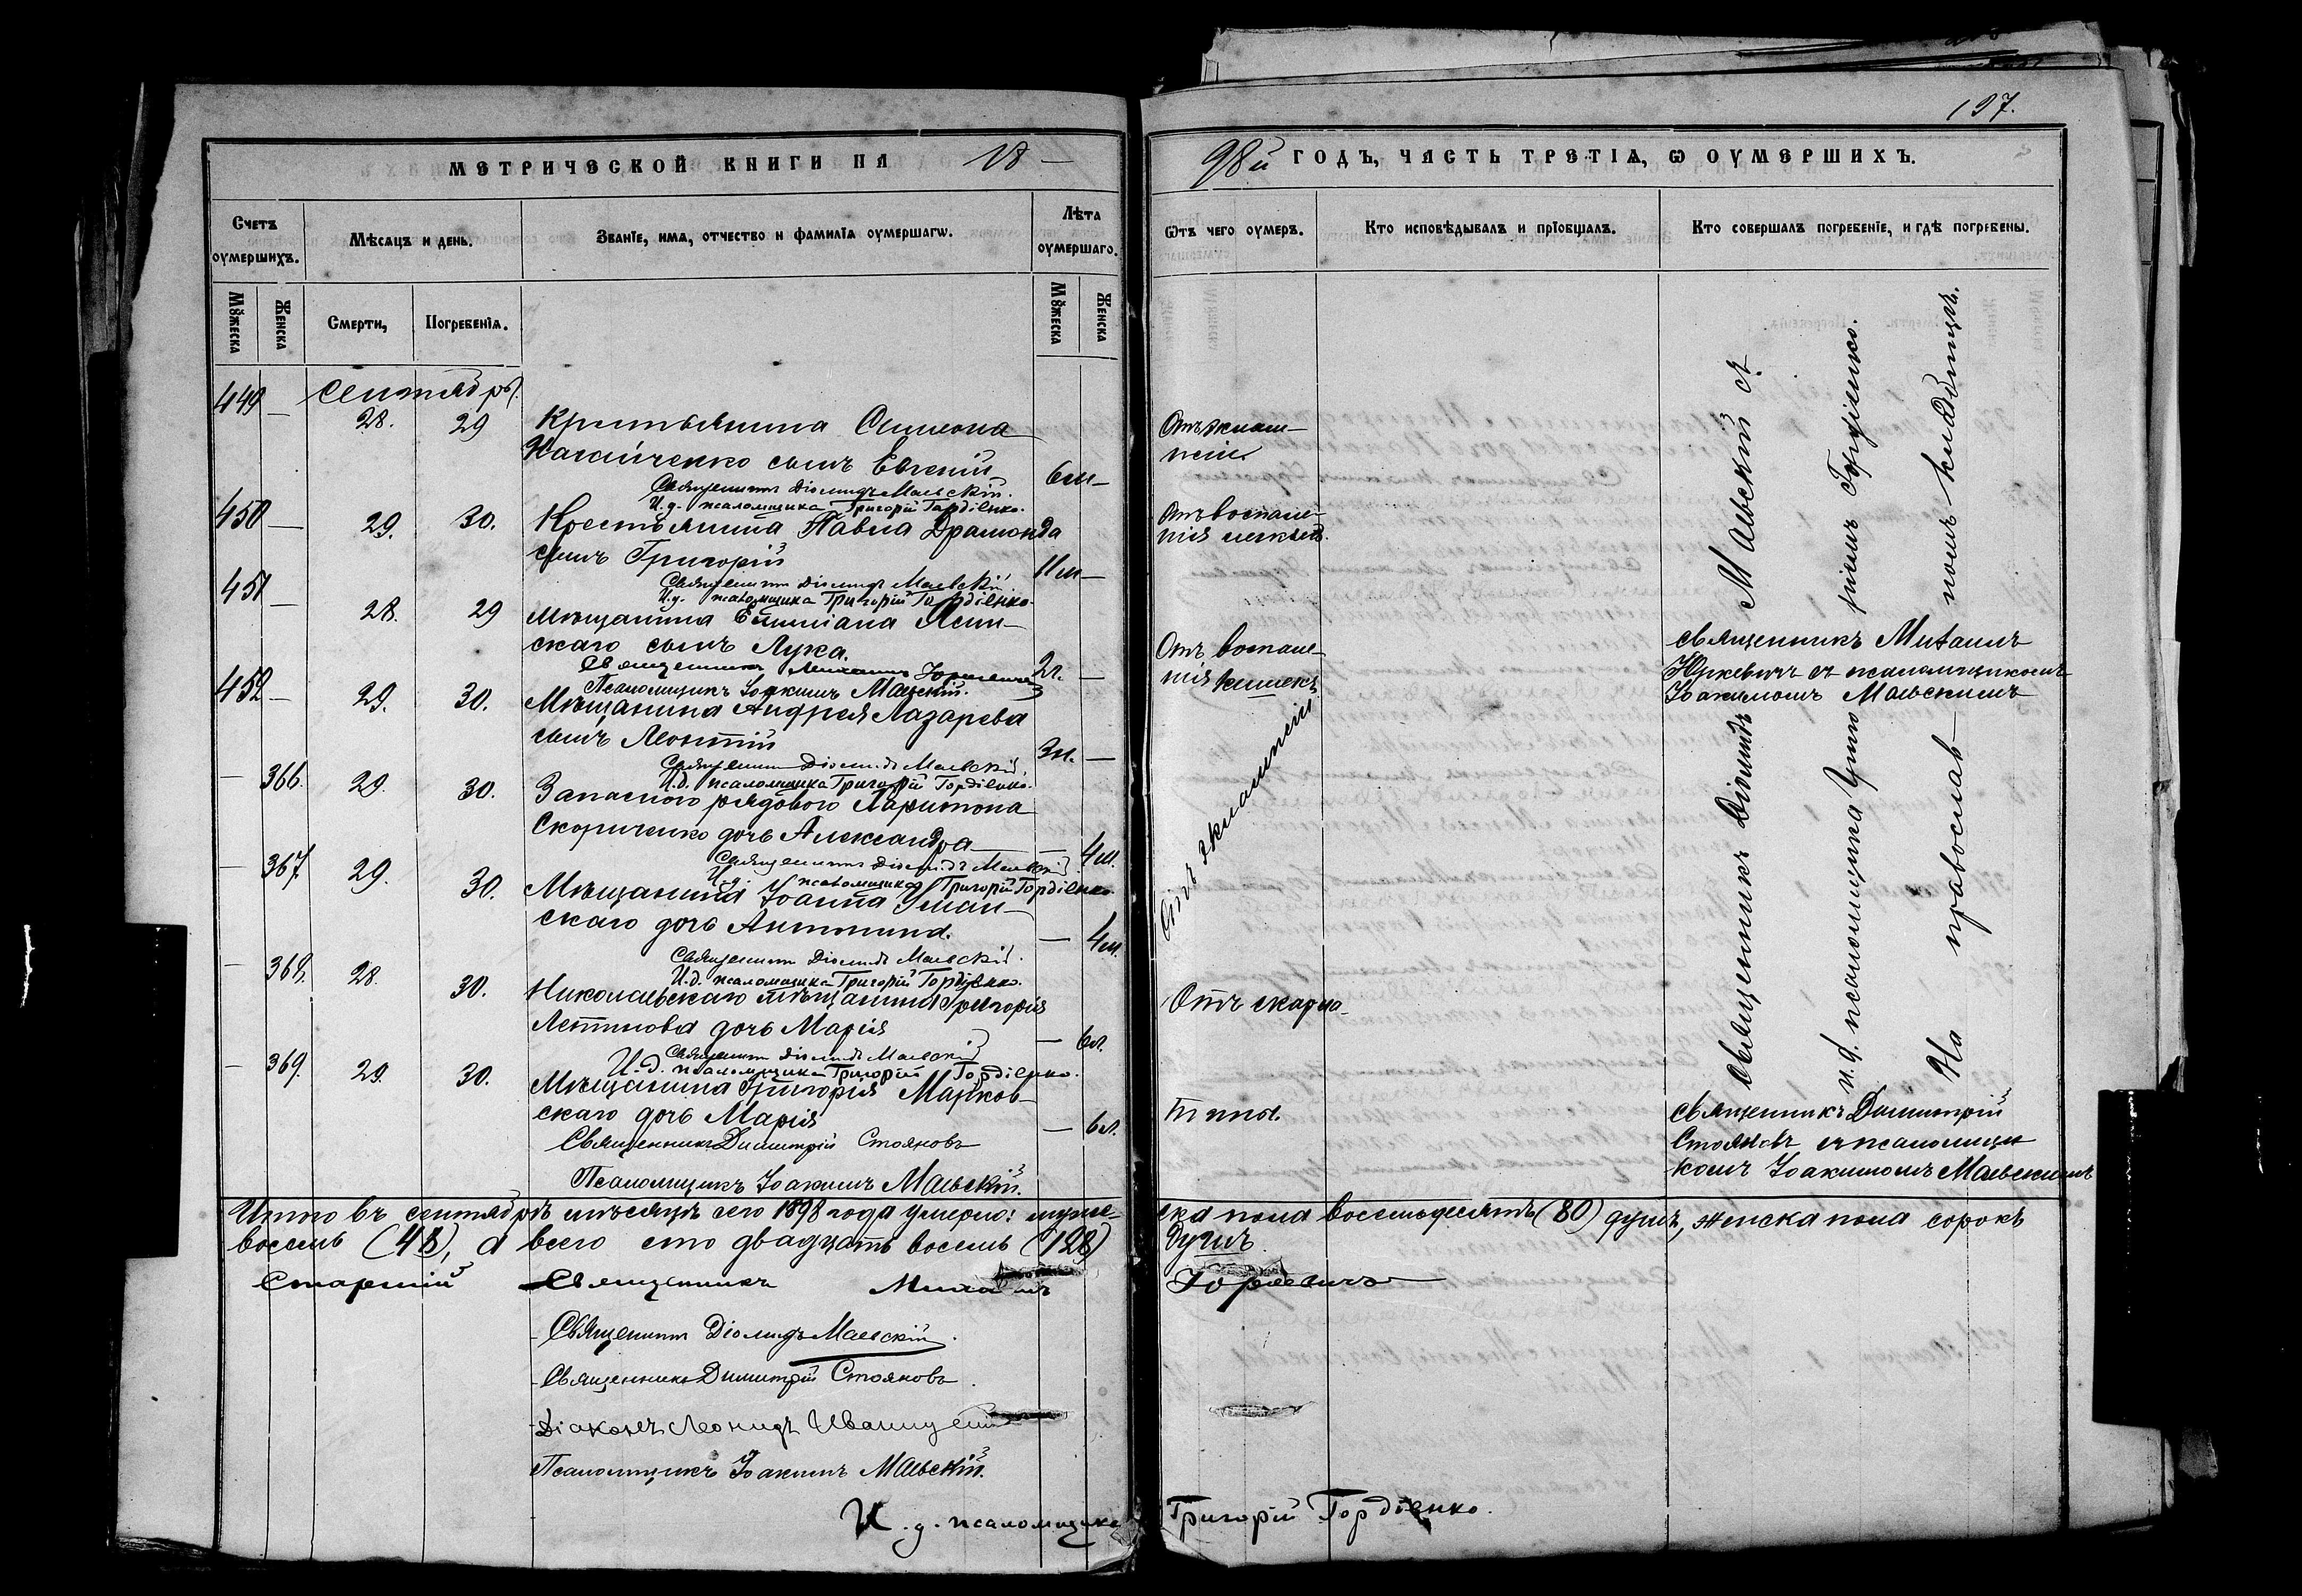 197.
МЕТРИЧЕСКОЙ КНИГИ НА 18 —
98й ГОДЪ, ЧАСТЬ ТРЕТІѦ, Ѡ ОУМЕРШИХЪ.
Счетъ оумершихъ.
Мѣсяцъ и день.
Званіе, имѧ, отчество и фамиліѧ оумершагѡ.
Лѣта оумершаго.
Ѿтъ чего оумеръ.
Кто исповѣдывалъ и прїобщалъ.
Кто совершалъ погребенїе, и гдѣ погребены.
Мꙋжеска
Женска
Смерти,
Погребеніѧ.
Мꙋжеска
Женска
449 — сентябрь
28. 29 Крестьянина Симеона
Нагайченко сынъ Евгеній 6 м —
Священникъ Діомидъ Маевскій.
И. д. псаломщика Григорій Гордіенко.
450 — 29. 30. Крестьянина Павла Драмонда
сынъ Григорій 11 м —
Священникъ Діомидъ Маевскій.
И. д. псаломщика Григорій Гордіенко.
451 — 28. 29 Мѣщанина Емиліана Ясин-
скаго сынъ Лука. 2 г. —
Священникъ Михаилъ Юркевичъ
Псаломщикъ Іоакимъ Маевскій.
452 — 29. 30. Мѣщанина Андрея Лазарева
сынъ Леонтій 3 н. —
Священникъ Діомидъ Маевскій.
И. д. псаломщика Григорій Гордіенко.
— 366. 29. 30. Запаснаго рядового Харитона
Скориченко дочь Александра — 4 м.
Священникъ Діомидъ Маевскій
И. д. псаломщика Григорій Гордіенко.
— 367. 29. 30. Мѣщанина Іоанна Уман-
скаго дочь Антонина. — 4 м.
Священникъ Діомидъ Маевскій.
И. д. псаломщика Григорій Гордіенко.
— 368. 28. 30. Николаевскаго мѣщанина Григорія
дочь Марія — 6 л.
Священникъ Діомидъ Маевскій
И. д. псаломщика Григорій Гордіенко.
— 369. 29. 30. Мѣщанина Григорія Марков-
скаго дочь Марія — 6 л.
Священникъ Димитрій Стояновъ
Псаломщикъ Іоакимъ Маевскій.
Отъ
Отъ воспале-
нія легкихъ.
Отъ воспале-
нія кишекъ
Отъ
Отъ скарла-
тины.
Священникъ Діомидъ Маевскій съ
и. д. псаломщика Григоріемъ Гордіенко.
На православномъ кладбищѣ.
священникъ Михаилъ
Юркевичъ съ псаломщикомъ
Іоакимомъ Маевскимъ
священникъ Димитрій
Стояновъ съ псаломщи
комъ Іоакимомъ Маевскимъ
Итого въ сентябрѣ мѣсяцѣ сего 1898 года умерло: муже-
ска пола восемьдесятъ (80) душъ, женска пола сорокъ
восемь (48), а всего сто двадцать восемь (128)
душъ.
Старшій Священникъ Михаилъ Юркевичъ
Священникъ Діомидъ Маевскій.
Священникъ Димитрій Стояновъ.
Діаконъ Леонидъ
Псаломщикъ Іоакимъ Маевскій.
И. д. псаломщика Григорій Гордіенко.